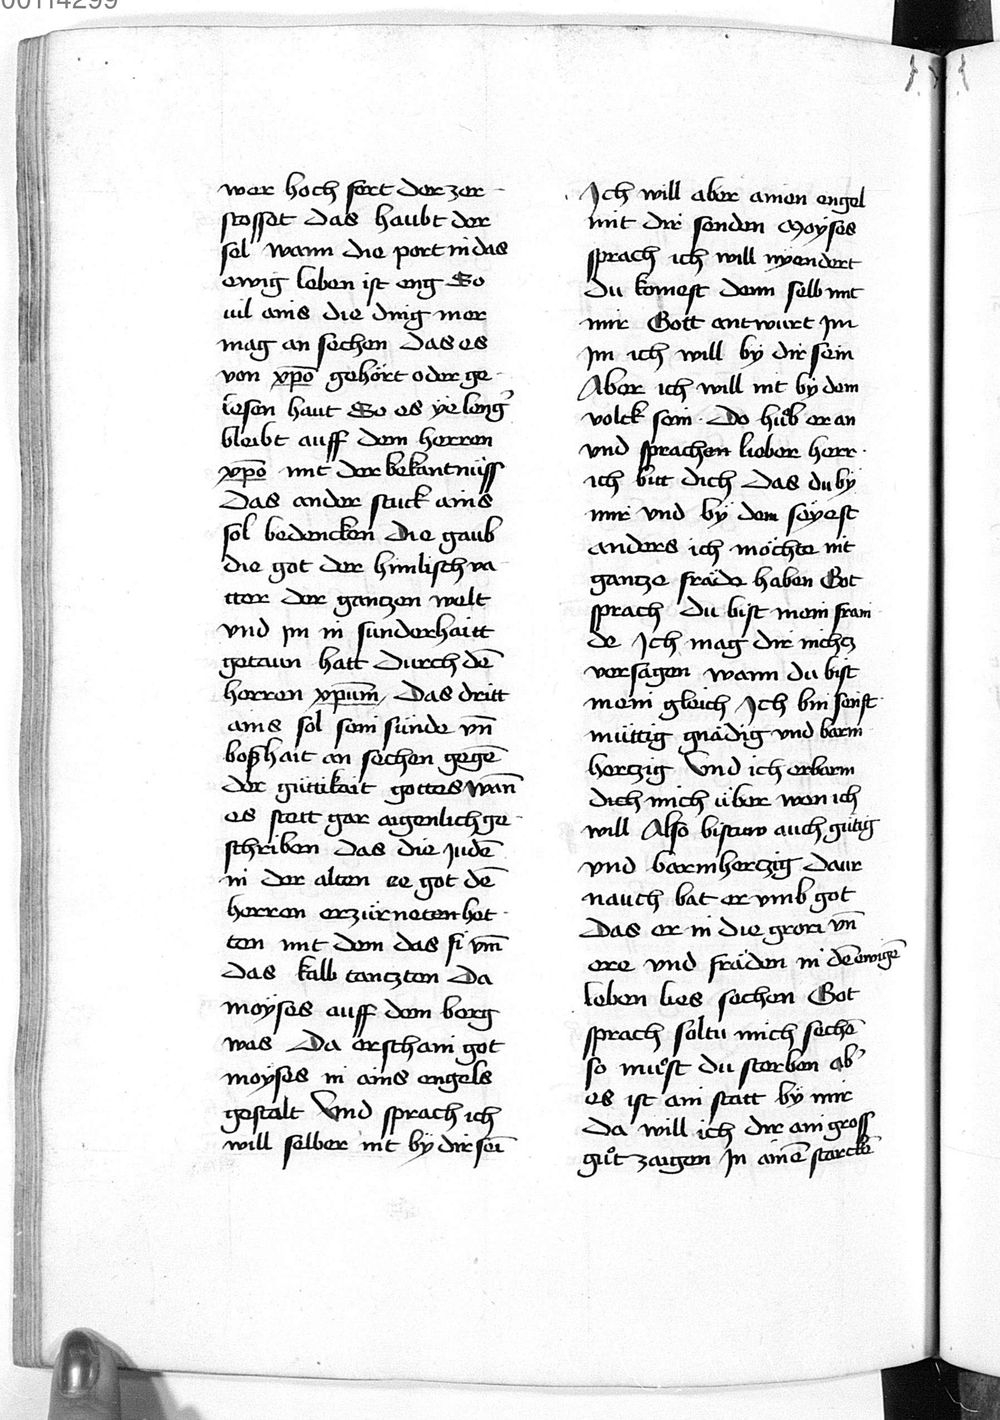 00114299
wer hoch fert der zer
stosset das haubt der
sel wann die port in das
ewig leben ist eng So
uil ains die ding mer
mag an sechen das es
von xp̄o gehört oder ge
lesen haut So es ye leng'
bleibt auff dem herren
xp̄o mit der bekantnüss
Das ander stuck ains
sol bedencken die gaub
die got der himlisch va
tter der gantzen welt
vnd im in sunderhaitt
getaun hatt durch dē
herren xp̄um Das dritt
ains sol sein sünde vn̄
boßhait an sechen gegē
der güttikait gottes wan̄
es stett gar aigenlich ge
schriben das die judē
in der alten ee got dē
herren erzürneten het
ten mit dem das si vm̄
das kalb tantzten Da
moyses auff dem berg
was Da erschain got
moyses in ains engels
gestalt Vnd sprach ich
will selber nit by dir sei̅
Ich will aber ainen engel
mit dir senden Moyses
sprach ich will nyendert
du komest denn selb mit
mir Gott antwurt im
Im ich will by dir sein
Aber ich will nit by dem
volck sein Do hůb er an
vnd sprachen lieber herr
ich bitt dich Das du by
mir vnd by dem seyest
anders ich möchte nit
gantze fräde haben Got
sprach du bist mein frain
de Ich mag dir nichtz
versagen wann du bist
mein gleich Ich bin senft
müttig gnädig vnd barm
hertzig Vnd ich erbarm
dich mich über wen ich
will Also bistuw auch gütig
vnd barmhertzig Daur
nauch bat er vmb got
Das er in die grori vn̄
ere vnd fräden in dē ewigē
leben lies sechen Got
sprach soltu mich sechē
so můst du sterben ab'
es ist ain statt by mir
Da will ich dir ain gross
gůt zaigen In ainē starckē